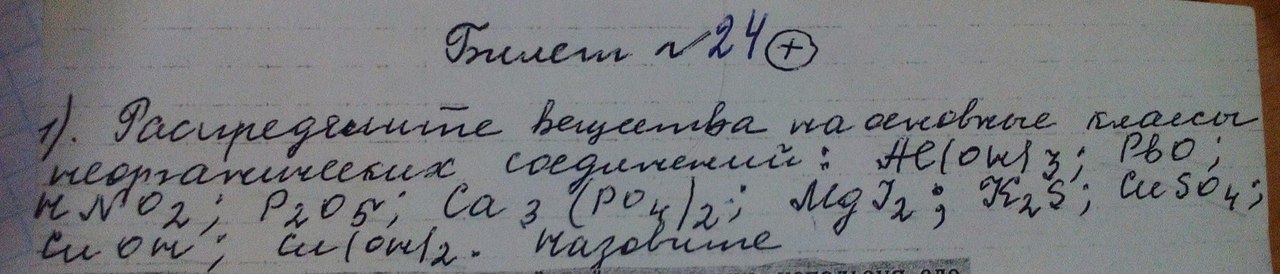 Билет № 24 +
1). Распределите вещества на основные классы
неорганических соединений: Al(OH)3; PbO;
HNO2; P2O5; Ca3(PO4)2; MgI2; K2S; CuSO4;
CuOH; Cu(OH)2. Назовите